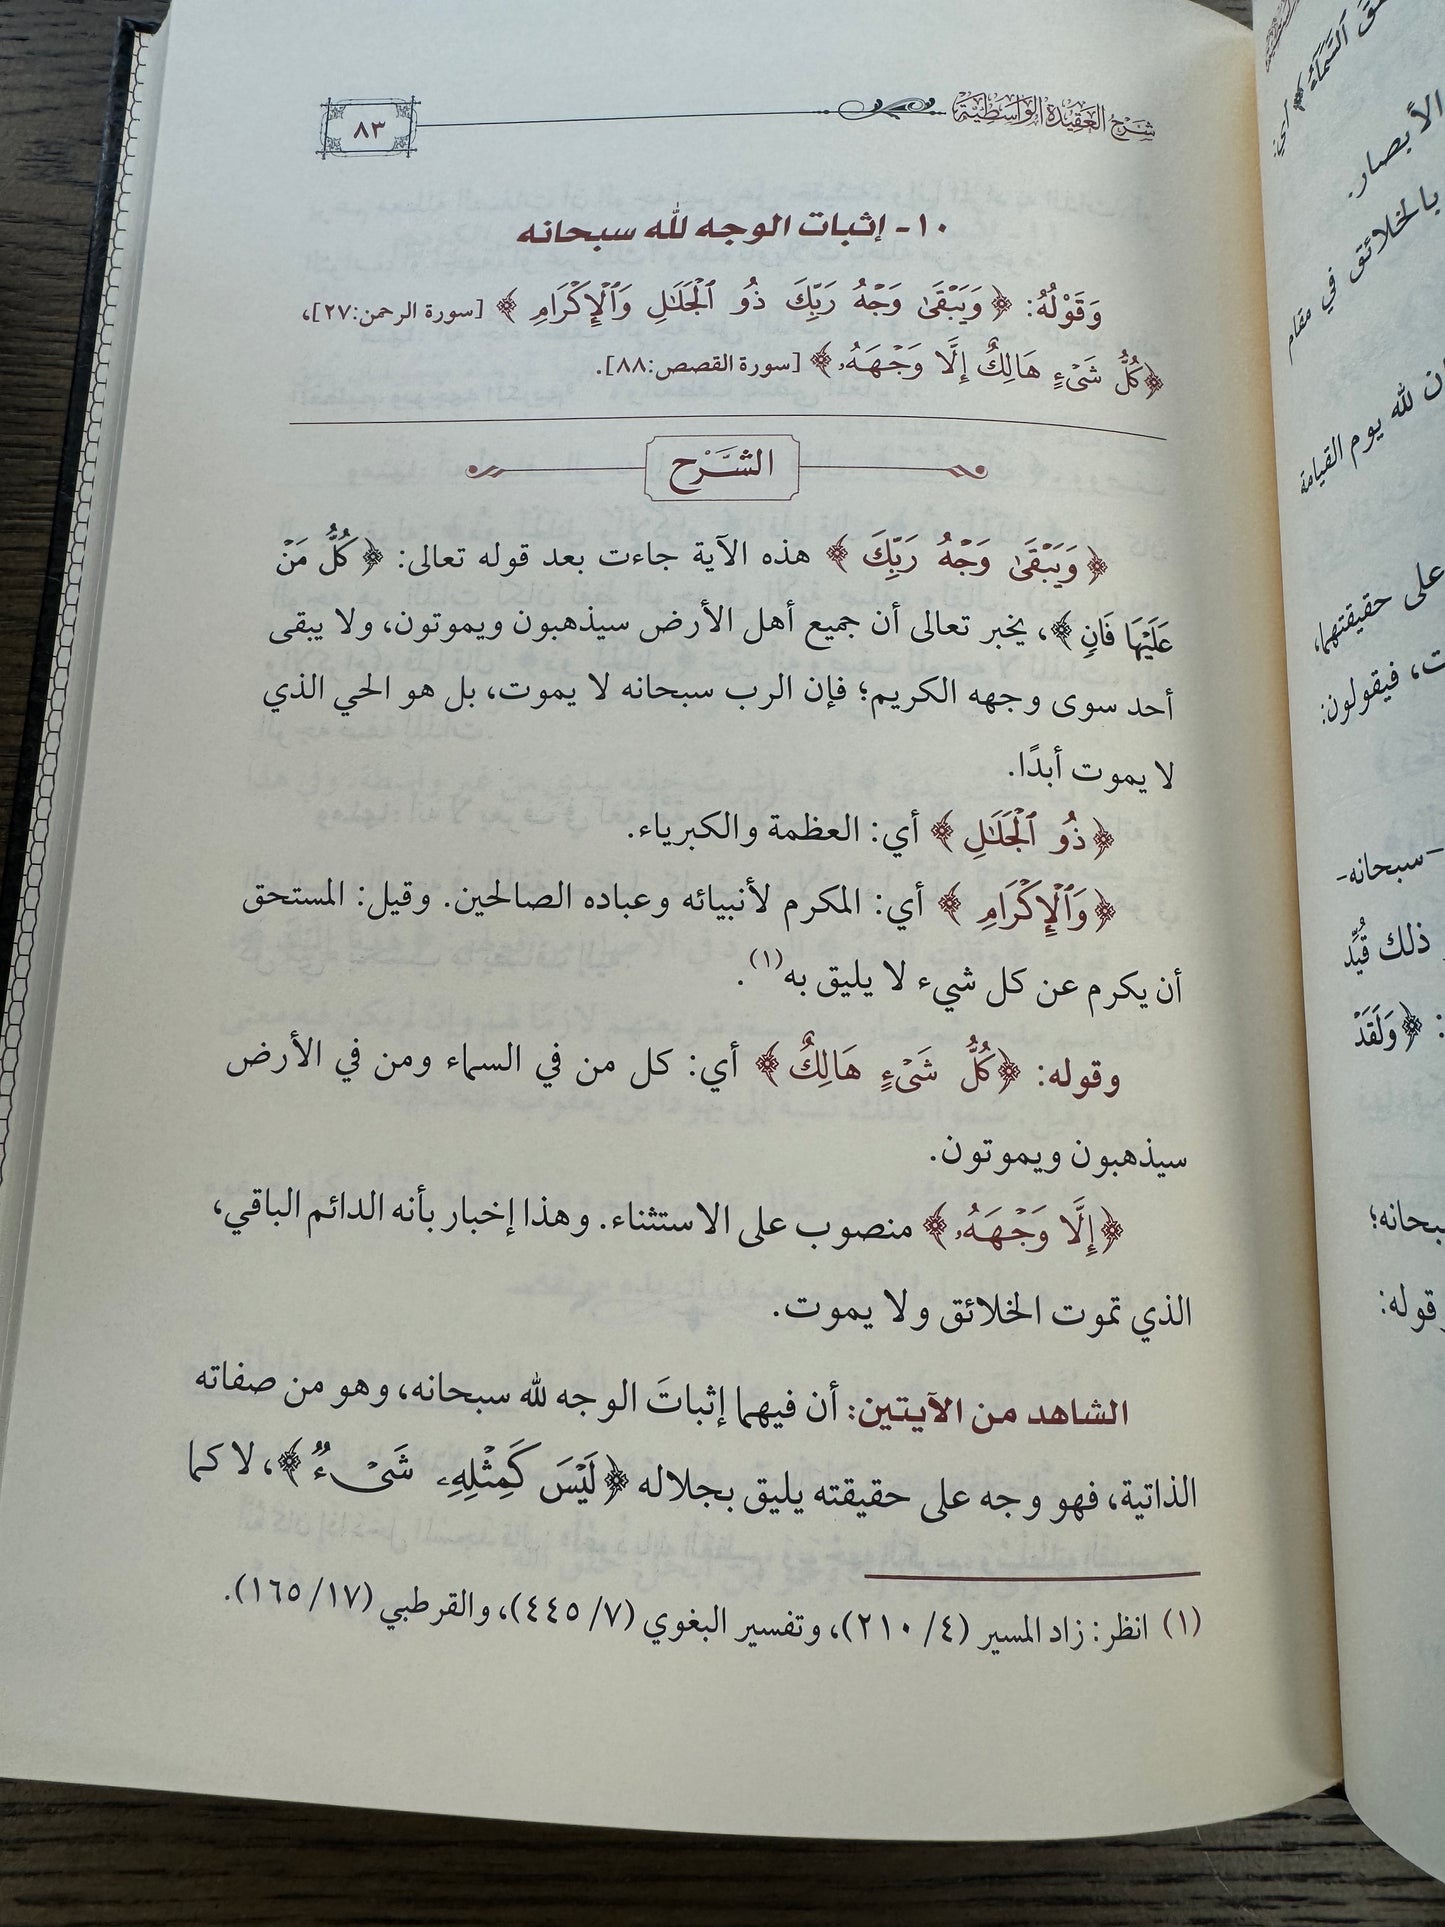 شرح العقيدة الواسطية
٨٣
١٠- إثبات الوجه لله سبحانه
وَقَوْلُهُ: ﴿وَيَبْقَىٰ وَجْهُ رَبِّكَ ذُو ٱلْجَلَٰلِ وَٱلْإِكْرَامِ﴾ [سورة الرحمن:٢٧]،
﴿كُلُّ شَىْءٍ هَالِكٌ إِلَّا وَجْهَهُۥ﴾ [سورة القصص:٨٨].
الشَّرْح
﴿وَيَبْقَىٰ وَجْهُ رَبِّكَ﴾ هذه الآية جاءت بعد قوله تعالى: ﴿كُلُّ مَنْ
عَلَيْهَا فَانٍ﴾، يخبر تعالى أن جميع أهل الأرض سيذهبون ويموتون، ولا يبقى
أحد سوى وجهه الكريم؛ فإن الرب سبحانه لا يموت، بل هو الحي الذي
لا يموت أبدًا.
﴿ذُو ٱلْجَلَٰلِ﴾ أي: العظمة والكبرياء.
﴿وَٱلْإِكْرَامِ﴾ أي: المكرم لأنبيائه وعباده الصالحين. وقيل: المستحق
أن يكرم عن كل شيء لا يليق به(١).
وقوله: ﴿كُلُّ شَىْءٍ هَالِكٌ﴾ أي: كل من في السماء ومن في الأرض
سيذهبون ويموتون.
﴿إِلَّا وَجْهَهُۥ﴾ منصوب على الاستثناء. وهذا إخبار بأنه الدائم الباقي،
الذي تموت الخلائق ولا يموت.
الشاهد من الآيتين: أن فيهما إثباتَ الوجه لله سبحانه، وهو من صفاته
الذاتية، فهو وجه على حقيقته يليق بجلاله ﴿لَيْسَ كَمِثْلِهِۦ شَىْءٌ﴾، لا كما
(١) انظر: زاد المسير (٤/ ٢١٠)، وتفسير البغوي (٧/ ٤٤٥)، والقرطبي (١٧/ ١٦٥).
الأبصار.
بالخلائق في مقام
ن لله يوم القيامة
على حقيقتهما،
ت، فيقولون:
-سبحانه-
ذلك قُيِّد
: ﴿وَلَقَدْ
بحانه؛
وقوله: